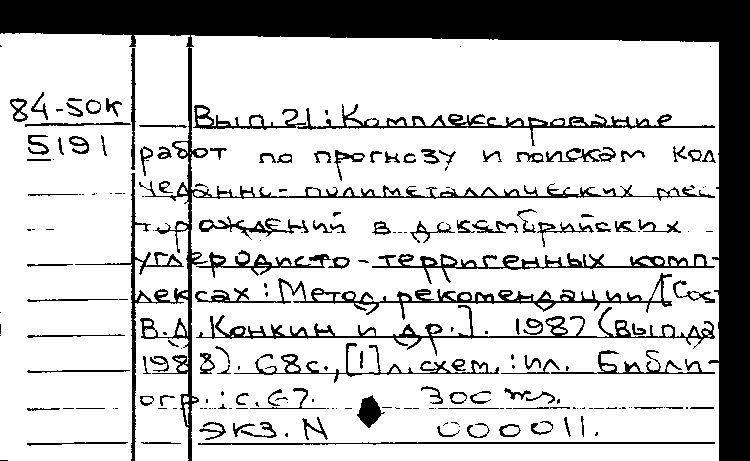 84-50к
5191
Вып. 21: Комплексирование
работ по прогнозу и поискам кол-
чеданно-полиметаллических мес-
торождений в докембрийских
углеродисто-терригенных комп-
лексах: Метод. рекомендации/[Сос
В.Д. Конкин и др.]. 1987 (вып. да
1988). 68 с., [1] л. схем. : ил. Библи-
огр.: с. 67. 300 экз.
ЭКЗ. N 000011.